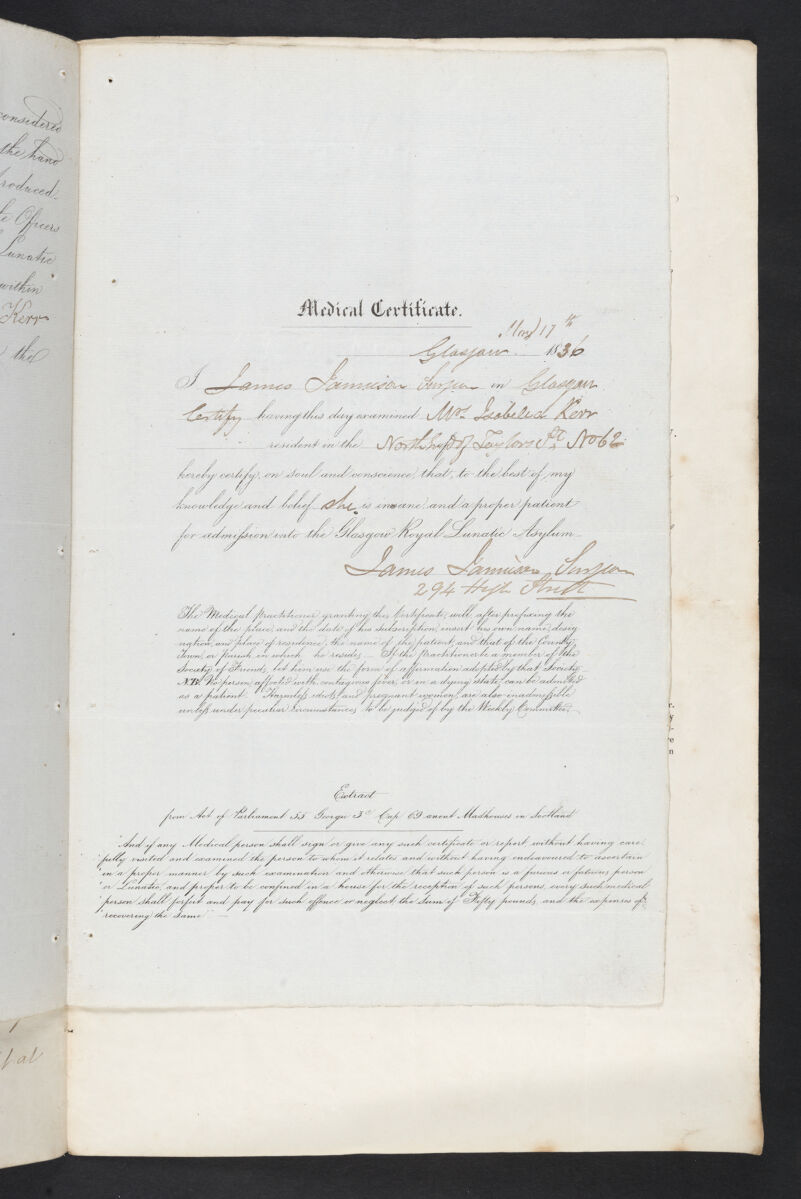 considered
the hand
produced
te Officers
Lunatic
within
Kerr
the
Medical Certificate.
17th
Glasgow 1836
I James Jamieson Surgeon in Glasgow
Certify having this day examined Mrs Isabella Kerr
resident in the North side of Taylors St No 62
hereby certify, on soul and conscience, that, to the best of my
knowledge and belief she is insane and a proper patient
for admission into the Glasgow Royal Lunatic Asylum
James Jamieson Surgeon
294 High Street
The Medical Practitioner granting this Certificate, will after prefixing the
name of the place, and the date of his subscription, insert his own name, desig
nation, and place of residence, the name of the patient, and that of the County,
Town, or Parish in which he resides. If the Practitioner be a member of the
Society of Friends, let him use the form of affirmation adopted by that Society.
N.B. No person affected with contagious fever, or in a dying state, can be admitted
as a patient. Harmless idiots and pregnant women, are also inadmissible
unless under peculiar circumstances, to be judged of by the Weekly Committee.
Extract
from Act of Parliament 55 George 3d Cap 69 anent Madhouses in Scotland
"And if any Medical person shall sign or give any such certificate or report without having care
"fully visited and examined the person to whom it relates and without having endeavoured to ascertain
"in a proper manner by such examination and otherwise that such person is a furious or fatuous person
"or Lunatic, and proper to be confined in a house for the reception of such persons, every such medical
"person shall forfeit and pay for such offence or neglect, the sum of Fifty pounds, and the expenses of
"recovering the same"